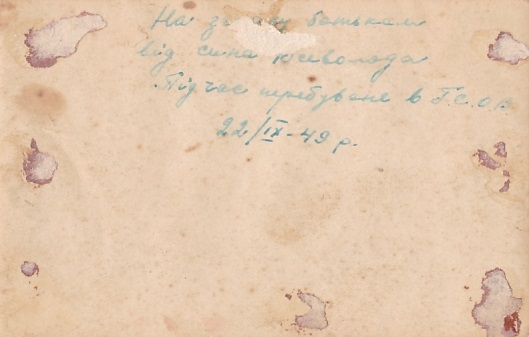 На батькам
від сина Всеволода
Під час перебуване в
22/IX-49 р.